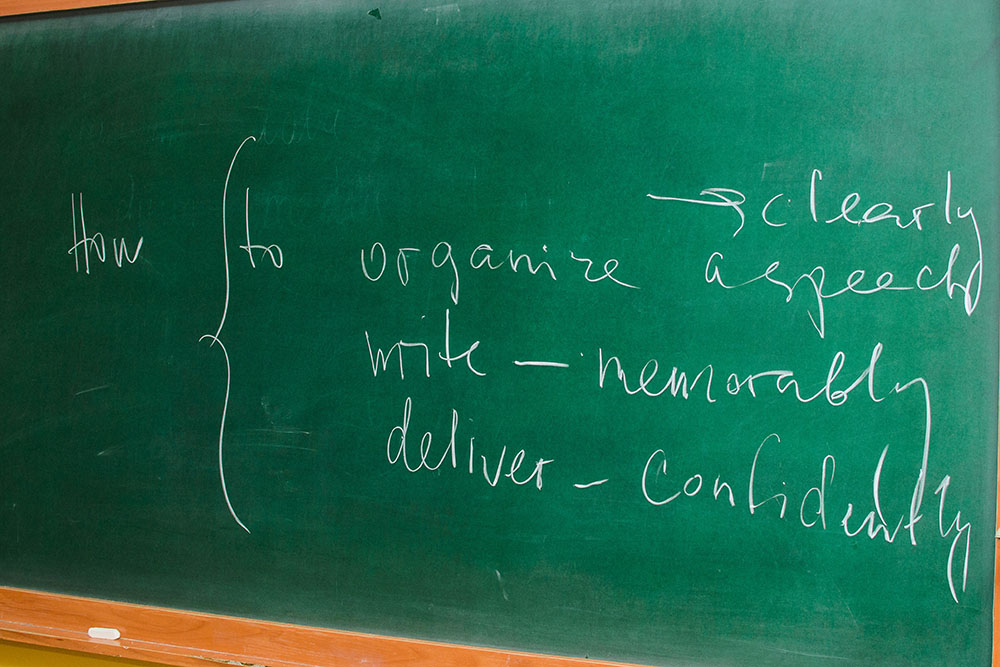 → clearly
How { to organize a speech
write – memorably
deliver – confidently